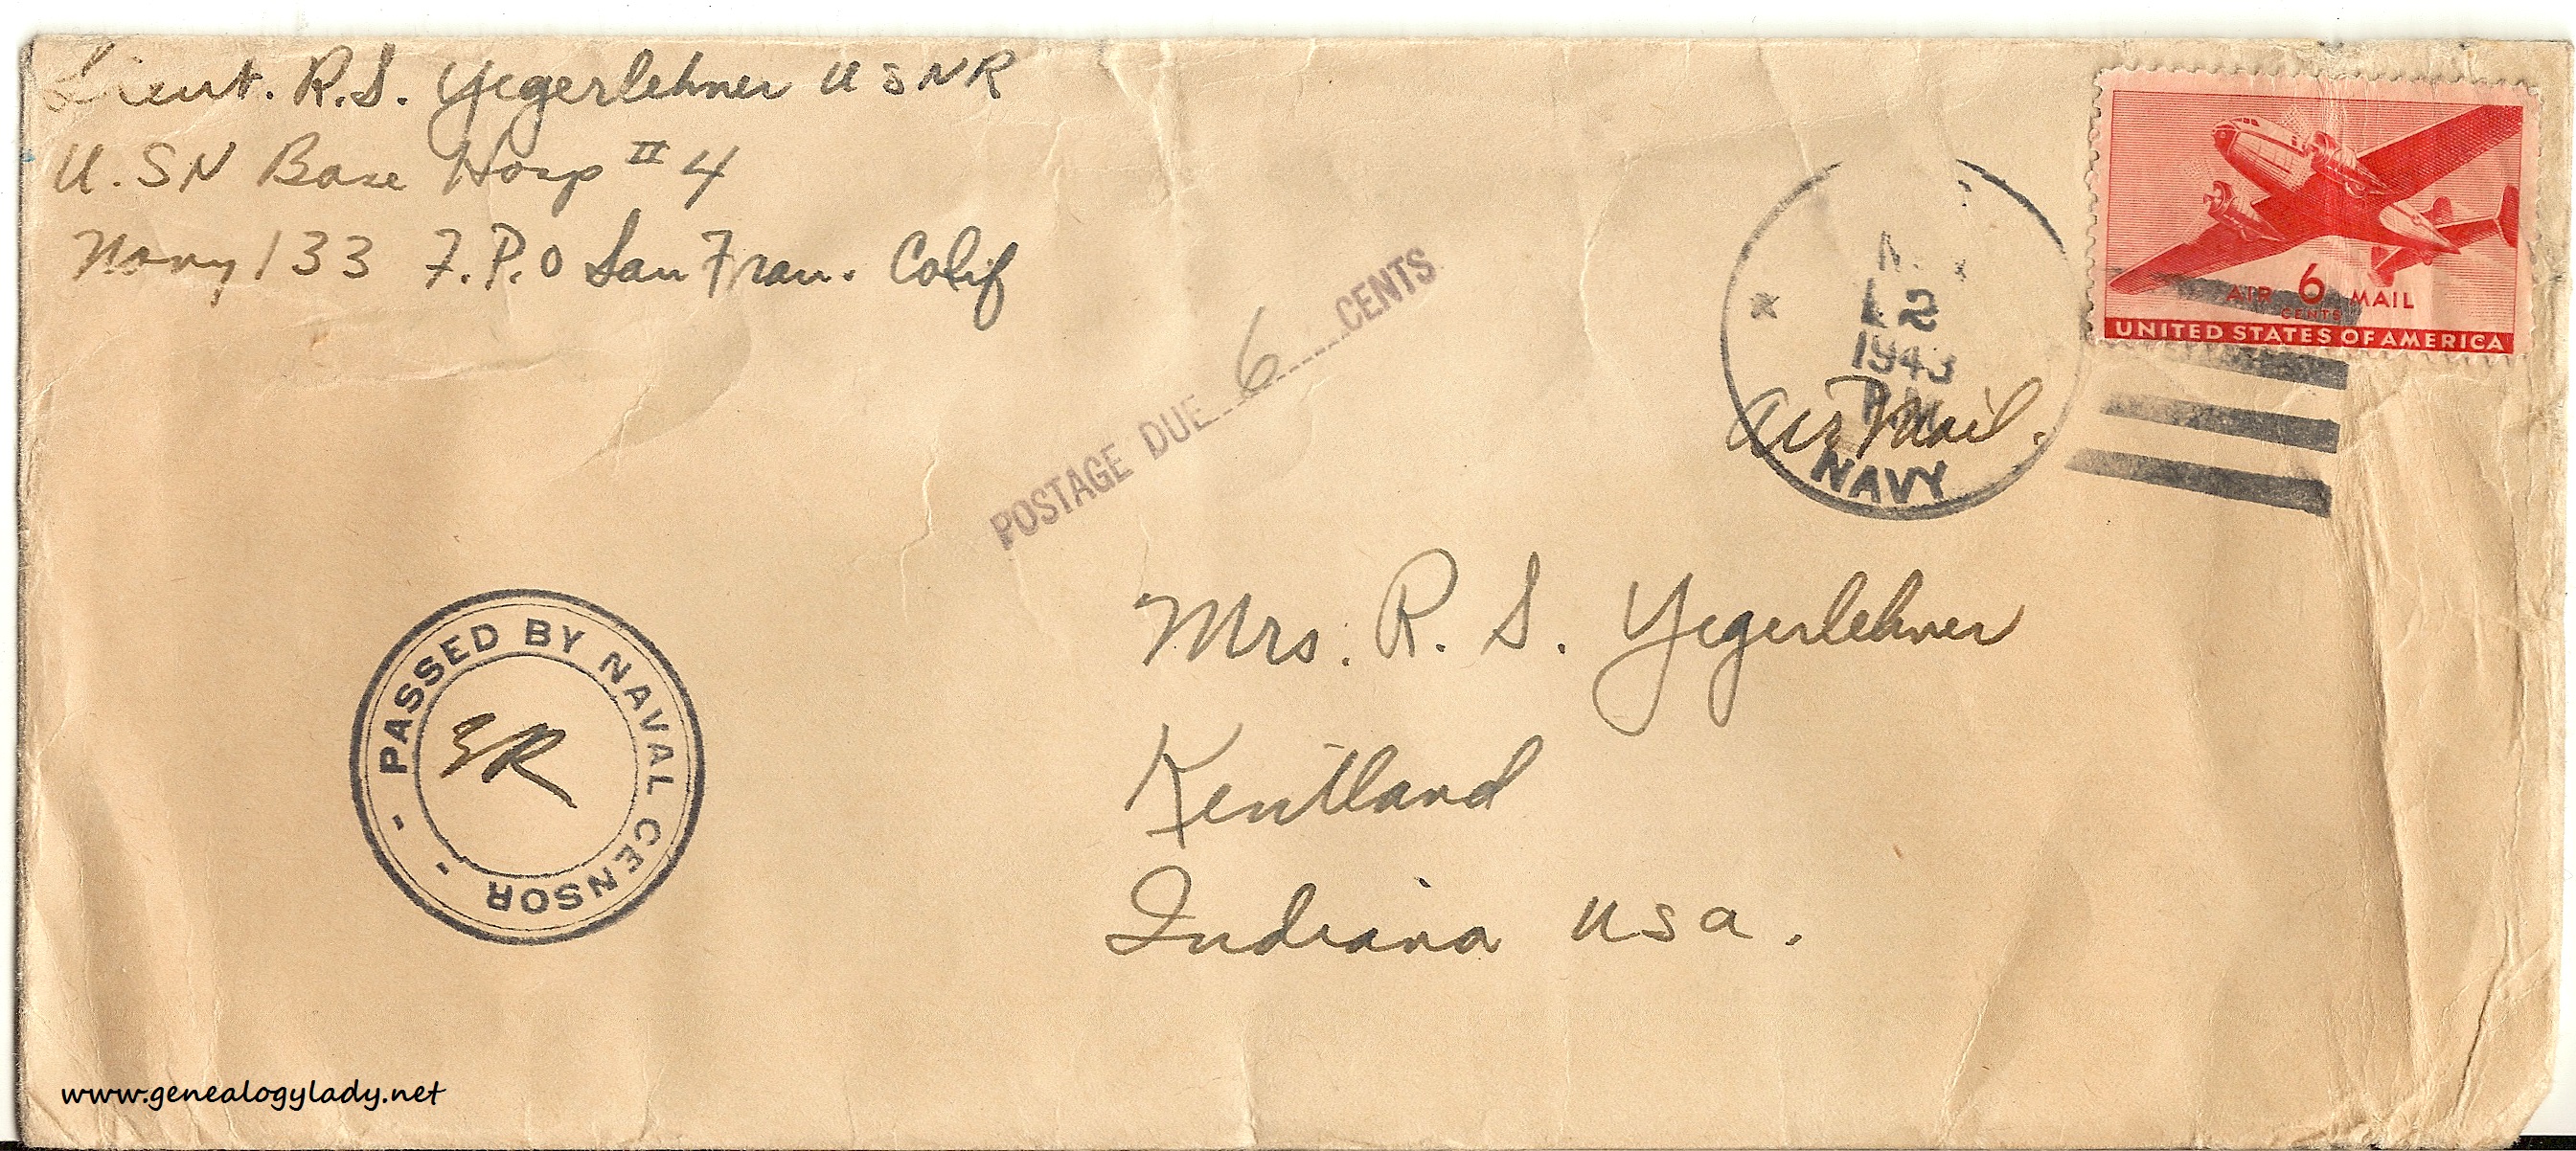 Lieut. R.S. Yegerlehner USNR
U.SN Base Hosp # 4
Navy 133 F.P.O San Fran. Calif
POSTAGE DUE 6 CENTS
2
1943
Air Mail.
NAVY
AIR 6 MAIL
CENTS
UNITED STATES OF AMERICA
- PASSED BY NAVAL CENSOR -
Mrs. R. S. Yegerlehner
Kentland
Indiana USA.
www.genealogylady.net